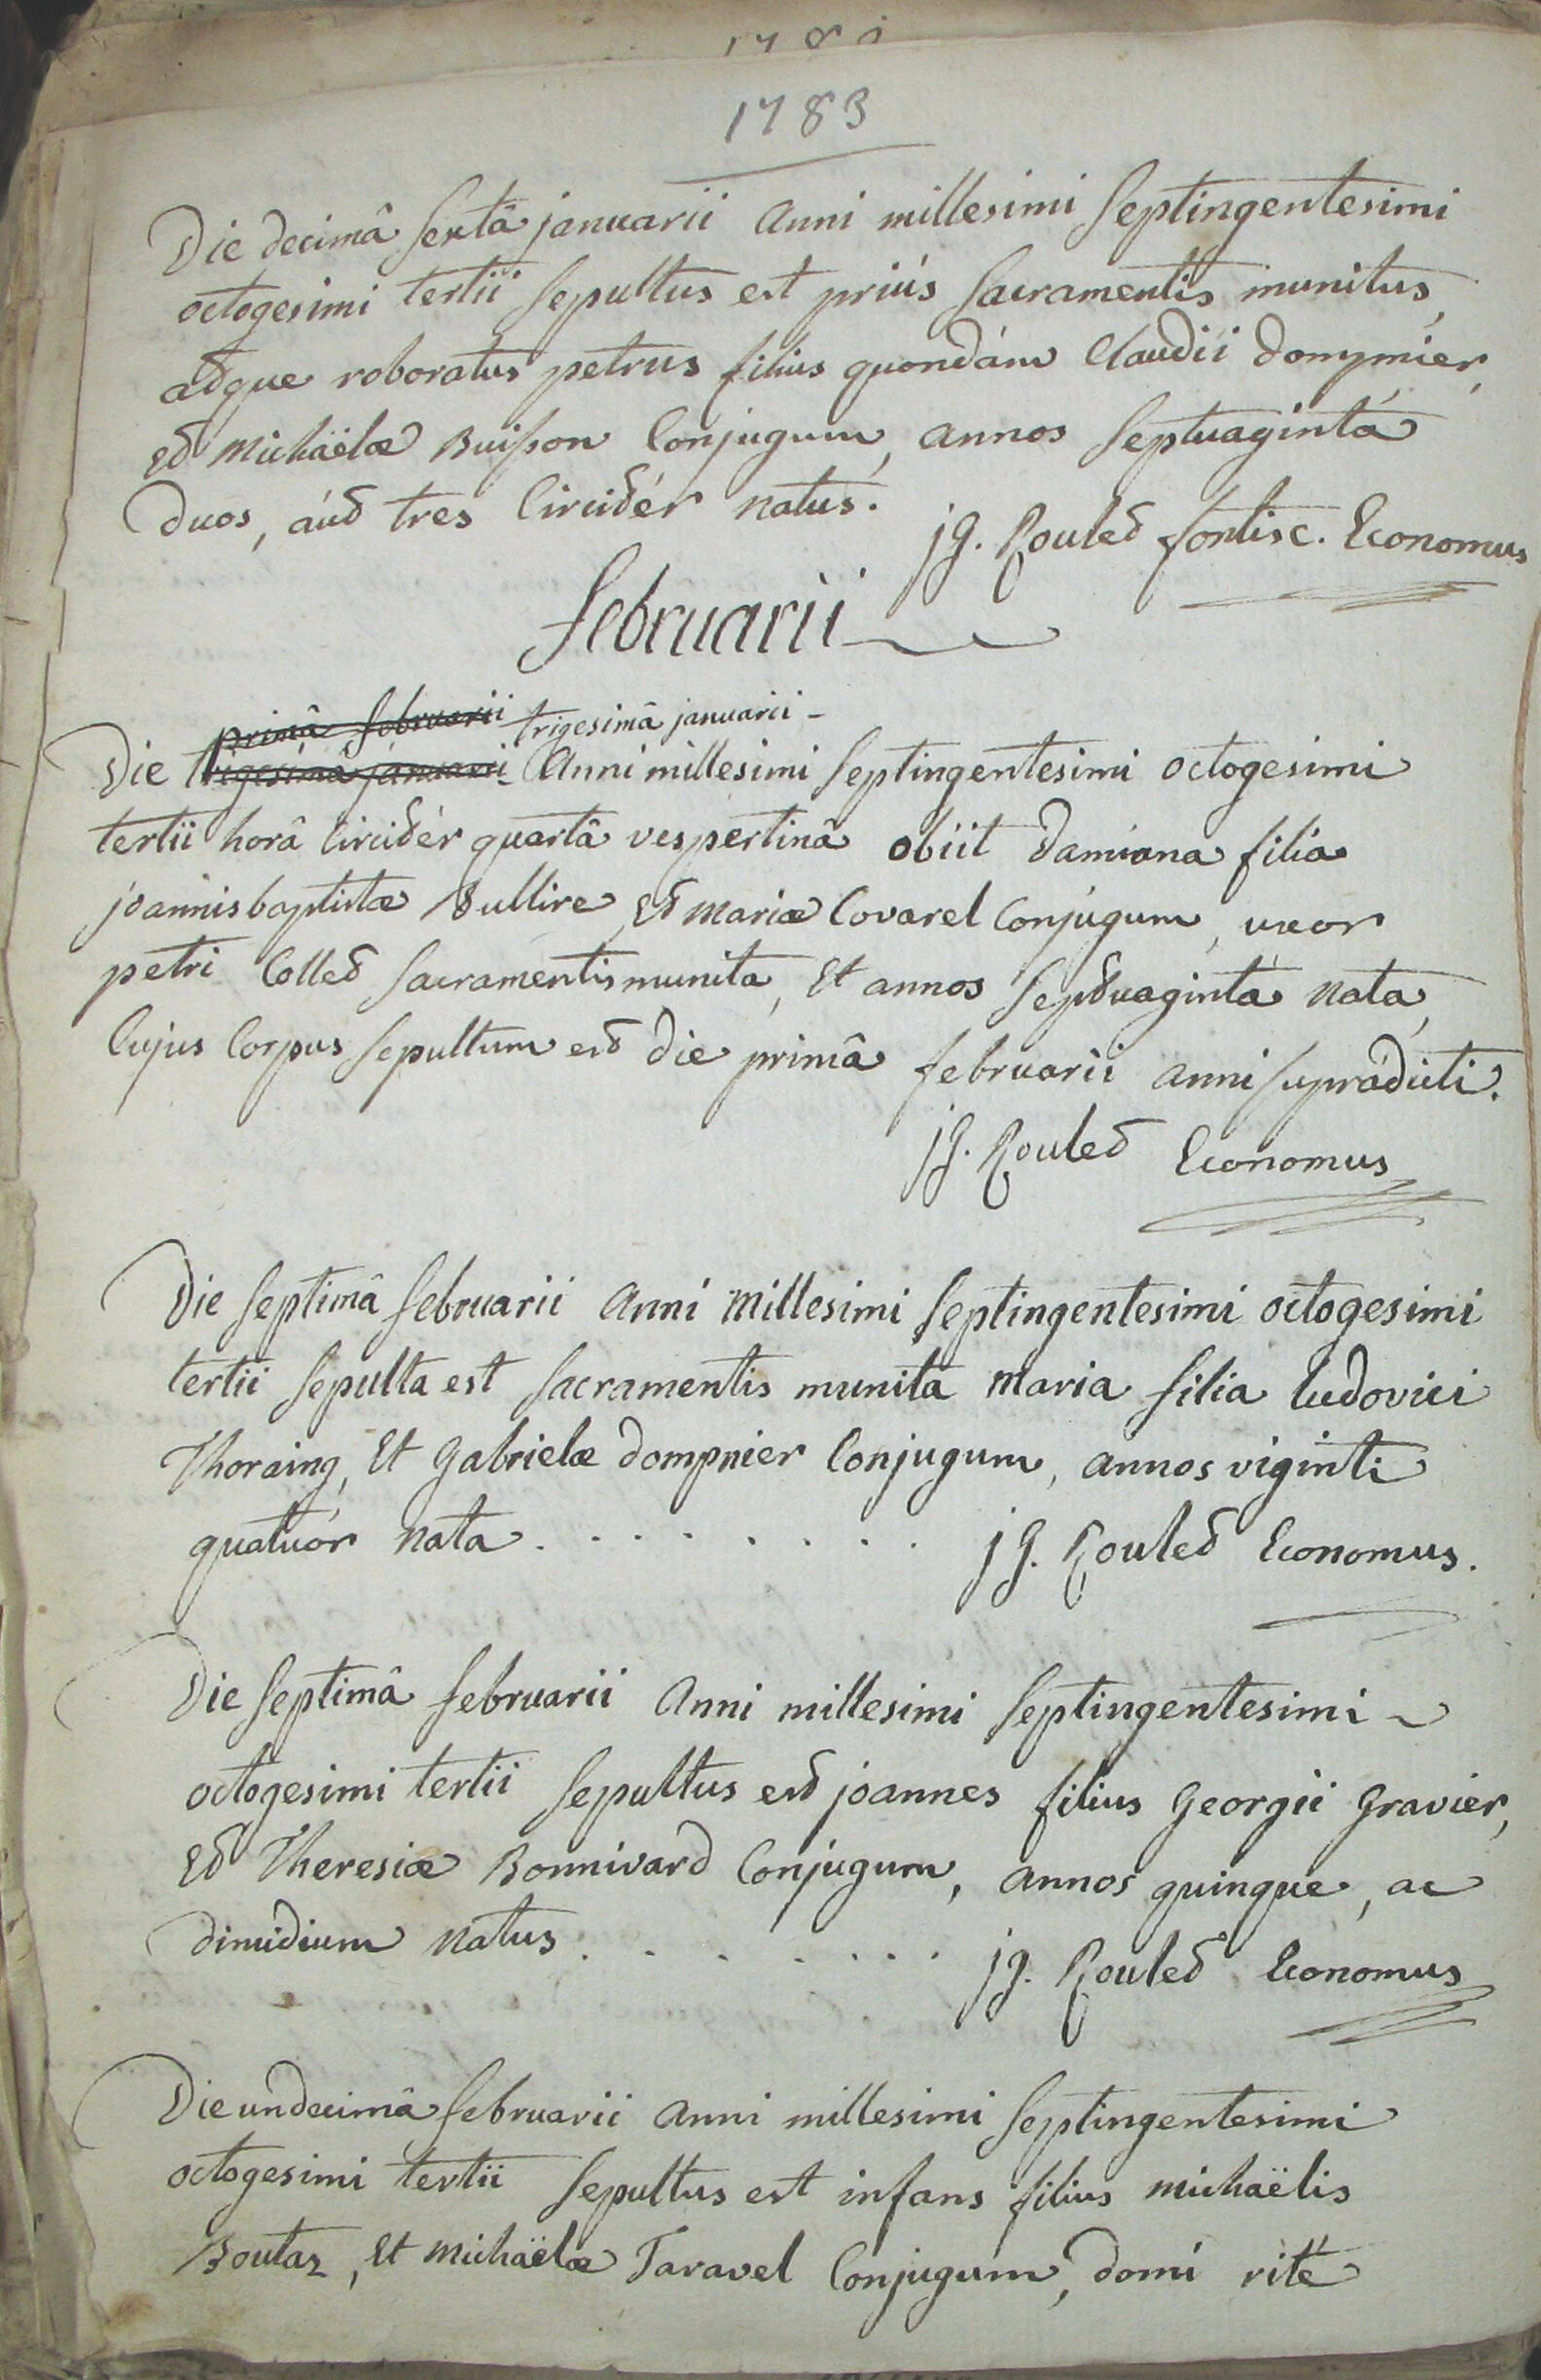 1783
Die decimâ sextâ januarii anni millesimi septingentesimi
octogesimi tertii sepultus est priùs sacramentis munitus,
atque roboratus petrus filius quondàm Claudii dompnier,
et Michaëlæ Buisson Conjugum, annos septuagintà
duos, áut tres Circitèr natus.
jg. Roulet fontisc. Economus
februarii
primâ februarii trigesimâ januarii -
Die trigesimâ januarii anni millesimi septingentesimi octogesimi
tertii horâ Circitèr quartâ vespertinâ obiit damiana filia
joannis baptistæ Sullire et mariæ Covarel Conjugum, uxor
petri Collet sacramentis munita, et annos septuagintà nata,
Cujus Corpus sepultum est die primâ februarii anni supràdicti.
jg. Roulet Economus
Die septimâ februarii anni millesimi septingentesimi octogesimi
tertii sepulta est sacramentis munita maria filia ludovici
Thoraing, et gabrielæ dompnier Conjugum, annos viginti
quatuòr nata . . . . . . . . jg. Roulet Economus.
Die septimâ februarii anni millesimi septingentesimi
octogesimi tertii sepultus est joannes filius georgii gravier,
et Theresiæ Bonnivard Conjugum, annos quinque, ac
dimidium natus . . . . . . . jg. Roulet Economus
Die undecimâ februarii anni millesimi septingentesimi
octogesimi tertii sepultus est infans filius michaëlis
Boutaz, et michaëlæ Taravel Conjugum, domi ritè